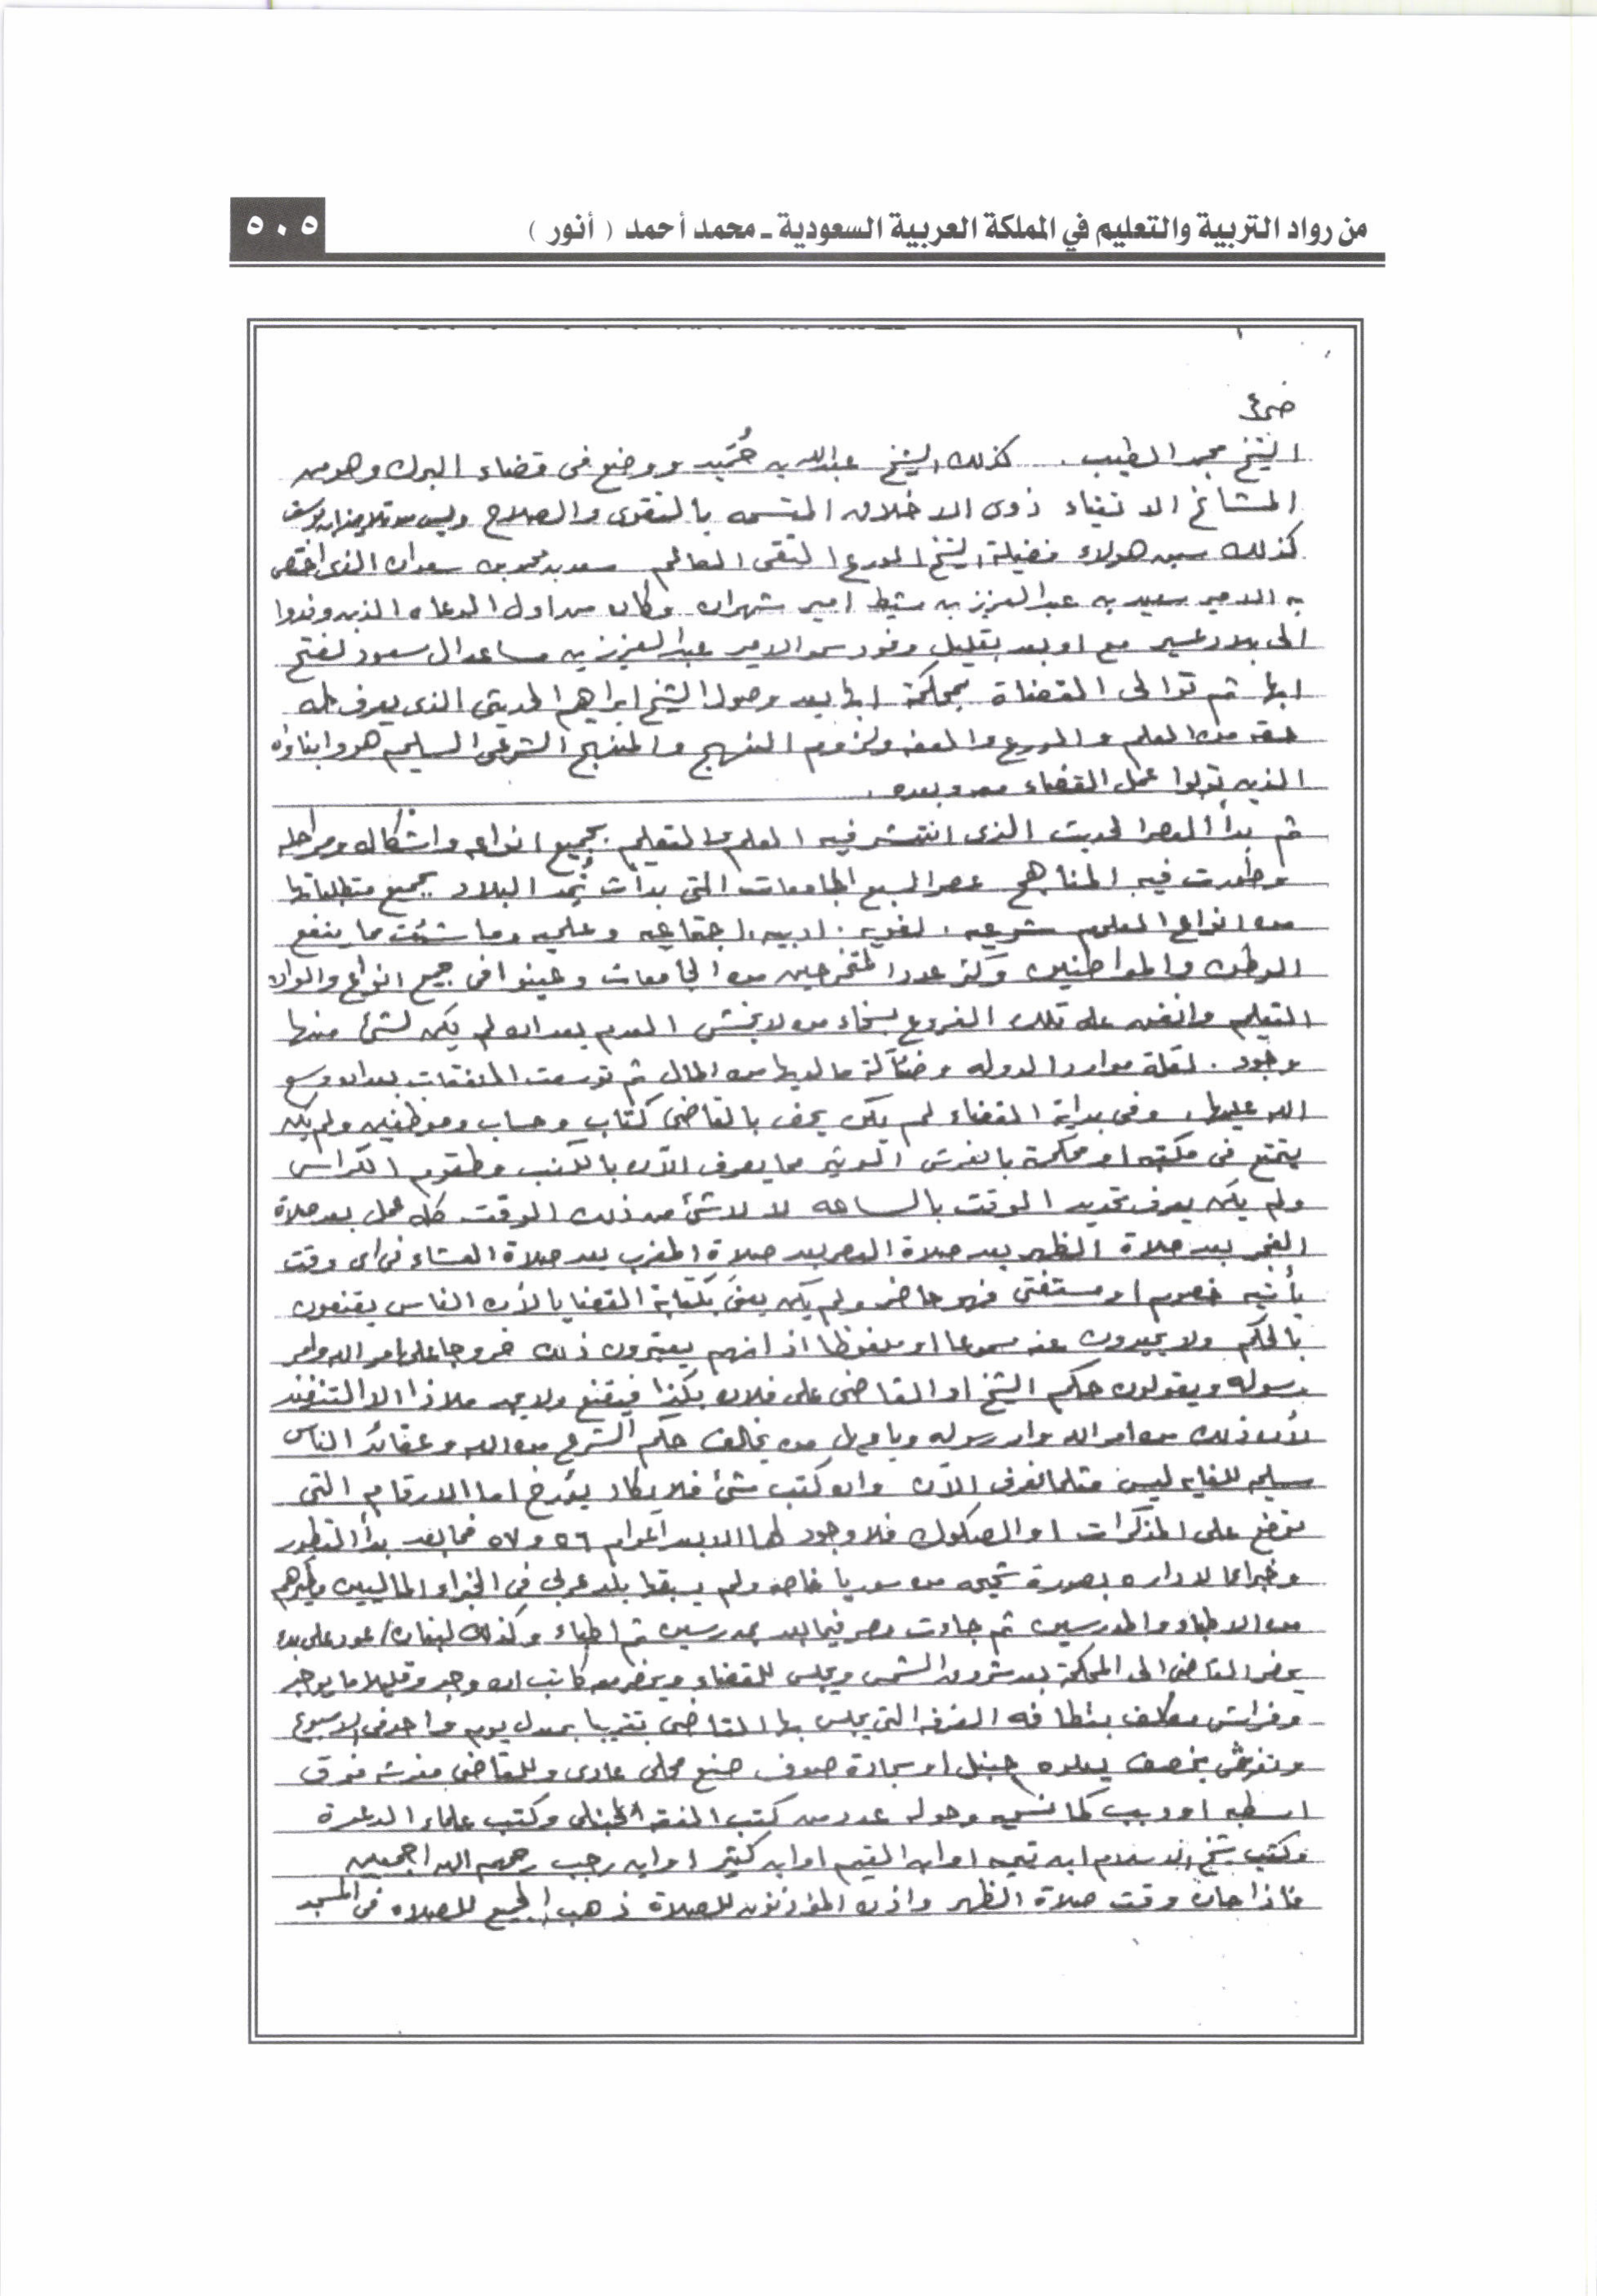 من رواد التربية والتعليم في المملكة العربية السعودية ـ محمد أحمد ( أنور )
٥٠٥
الشيخ محمد الطيب . كذلك الشيخ عبدالله بن حُمَيد ووضع فى قضاء البرك وهو من
المشائخ الاتقياء ذوى الاخلاق المتسمه بالتقوى والصلاح وليس من تلاميذ ابن يوسف
كذلك سبق هولاء فضيلة الشيخ الورع التقى العالم سعد بن محمد بن سعدان الذى اختص
به الامير سعيد بن عبد العزيز بن مشيط امير شهران وكان من اول الدعاه الذين وفدوا
الى بلاد عسير مع او بعد بقليل وفود سمو الامير عبد العزيز بن مساعد ال سعود لفتح
ابها ثم توالى القضاة بمحكمة ابها بعد وصول الشيخ ابراهيم الحديثى الذى يعرف له
حقه من العلم والورع والعفه ولزوم النهج والمنهج الشرعى السليم هو وابناؤه
الذين تولوا عمل القضاء معه وبعده .
ثم بدأ العصر الحديث الذى انتشر فيه العلم والتعليم بجميع انواعه واشكاله ومراحله
وطورت فيه المناهج عصر السبع الجامعات التى بدأت تُمِد البلاد بجميع متطلباتها
من انواع العلوم شرعيه . لغويه . ادبيه . اجتماعيه وعلميه وما شئت مما ينفع
الوطن والمواطنين وكثر عدد المتخرجين من الجامعات وعينوا فى جميع انواع والوان
التعليم وانفق على تلك الفروع بسخاء من لا يخشى العدم بعد ان لم يكن لشئ منها
وجود . لقلة موارد الدوله وضئآلة ما لديها من المال ثم توسعت النفقات بعد ان وسع
الله عليها . وفى بداية القضاء لم يكن يحف بالقاضى كُتّاب وحساب وموظفين ولم يكن
يتمتع فى مكتبه او محكمة بالفرش الوثير مما يعرف الآن بالكنب وطقوم الكراسى
ولم يكن يعرف تحديد الوقت بالساعه لا لا شئ من ذلك الوقت كله عمل بعد صلاة
الفجر بعد صلاة الظهر بعد صلاة العصر بعد صلاة المغرب بعد صلاة العشاء فى اى وقت
يأتيه خصوم او مستفتى فهو حاضر ولم يكن يعنى بكتابة القضايا لأن الناس يقنعون
بالحكم ولا يحيدون عنه مسموعا او ملفوظا اذ انهم يعتبرون ذلك خروجا على امر الله وامر
رسوله ويقولون حكم الشيخ او القاضى على فلان بكذا فيقنع ولا يجد ملاذا الا التنفيذ
لأن ذلك من امر الله وامر رسوله ويا ويل من يخالف حكم الشرع من الله وعقائد الناس
سليمه للغايه ليس مثلما نعرف الآن وان كتب شئ فلا يكاد يؤرخ اما الارقام التى
توضع على المذكرات او الصكوك فلا وجود لها الا بعد اعوام ٥٦ و ٥٧ فما بعد بدأ التطور
وخبراء الاداره بصورة صحيحه من سوريا خاصه ولم يسبقها بلد عربى فى الخبراء الماليين وغيرهم
من الاطباء والمدرسين ثم جاءت مصر فيما بعد بمدرسين ثم اطباء وكذلك لبنان / عود على بدء
يحضر القاضى الى المحكمة بعد شروق الشمس ويجلس للقضاء ويحضر معه كاتب ان وجد وقليلا ما يوجد
وفراش مكلف بنظافه الغرفه التى يجلس بها القاضى تقريبا بمعدل يوم واحد فى الاسبوع
وتفرش بخصف يعلوه حنبل او سجادة صوف صنع محلى عادى وللقاضى مفرشه فوق
وحوله عدد من كتب الفقه الحنبلى وكتب علماء الدعوة
وكتب شيخ الاسلام ابن تيميه او ابن القيم او ابن كثير او ابن رجب رحمهم الله اجمعين
فاذا حان وقت صلاة الظهر واذن المؤذنون للصلاة ذهب الجميع للصلاه فى المسجد